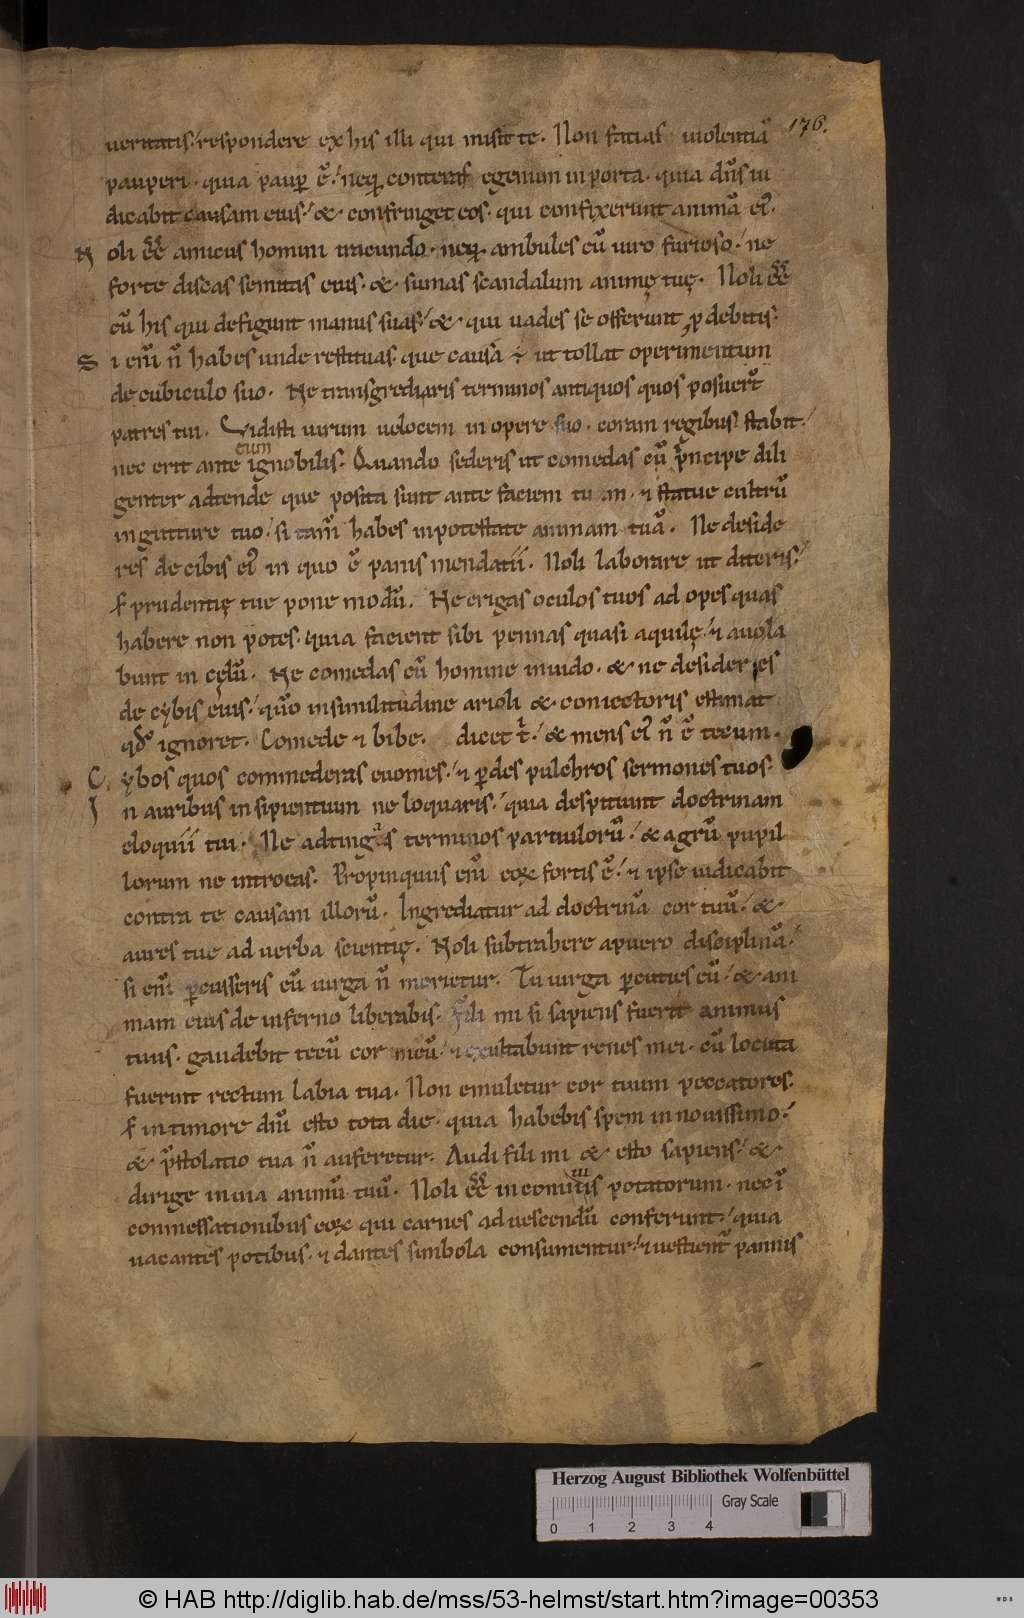 176.
ueritatis. respondere ex his illi qui misit te. Non facias uiolentiā
pauperi. quia paup ē. neq; conteras egenum in porta. quia dn̄s iu
dicabit causam eius. & confringet eos. qui confixerunt animā ei'.
Noli eē amicus homini iracundo. neq; ambules cū uiro furioso. ne
forte discas semitas eius. & sumas scandalum animę tuę. Noli eē
cū his qui defigunt manus suas. & qui uades se offerunt p debitis.
Si eni̅ n̄ habes unde restituas. que causa ÷ ut tollat operimentum
de cubiculo suo. Ne transgrediaris terminos antiquos quos posuer̄t
patres tui. Vidisti uirum uelocem in opere suo. coram regibus stabit.
nec erit ante ignobilis. Quando sederis ut comedas cū pncipe dili
eum
genter adtende que posita sunt ante faciem tuam. ⁊ statue cultrū
in gutture tuo. si tam̄ habes in potestate animam tuā. Ne deside
res de cibis ei' in quo ē panis mendatii. Noli laborare ut diteris.
s; prudentię tue pone modū. Ne erigas oculos tuos ad opes quas
habere non potes. quia facient sibi pennas quasi aquilę. ⁊ auola
bunt in cęlū. Ne comedas cū homine inuido. & ne desideries
de cybis eius. qm̄o in similitudine arioli & coniectoris estimat
qđ ignoret. Comede ⁊ bibe. dicet t'. & mens ei' n̄ ē tecum.
Cybos quos commederas euomes. ⁊ pdes pulchros sermones tuos.
In auribus insipientium ne loquaris. quia despitiunt doctrinam
eloquii tui. Ne adtingas terminos paruulorū. & agrū pupil
lorum ne introeas. Propinquus eni̅ eoꝝ fortis ē. ⁊ ipse iudicabit
contra te causam illorū. Ingrediatur ad doctrinā cor tuū. &
aures tue ad uerba scientię. Noli subtrahere a puero disciplinā.
si eni̅ pcusseris eū uirga n̄ morietur. Tu uirga pcuties eū. & ani
mam eius de inferno liberabis. Fili mi si sapiens fuerit animus
tuus. gaudebit tecū cor meū. ⁊ exultabunt renes mei. cū locuta
fuerint rectum labia tua. Non emuletur cor tuum peccatores.
s; in timore dn̄i esto tota die. quia habebis spem in nouissimo.
& pstolatio tua n̄ auferetur. Audi fili mi & esto sapiens. &
dirige in uia animū tuū. Noli eē in conuiuiis potatorum. nec ī
commessationibus eoꝝ qui carnes ad uescendū conferunt. quia
uacantes potibus. ⁊ dantes simbola consumentur. ⁊ uestient̄ pannis
Herzog August Bibliothek Wolfenbüttel
Gray Scale
0 1 2 3 4
© HAB http://diglib.hab.de/mss/53-helmst/start.htm?image=00353